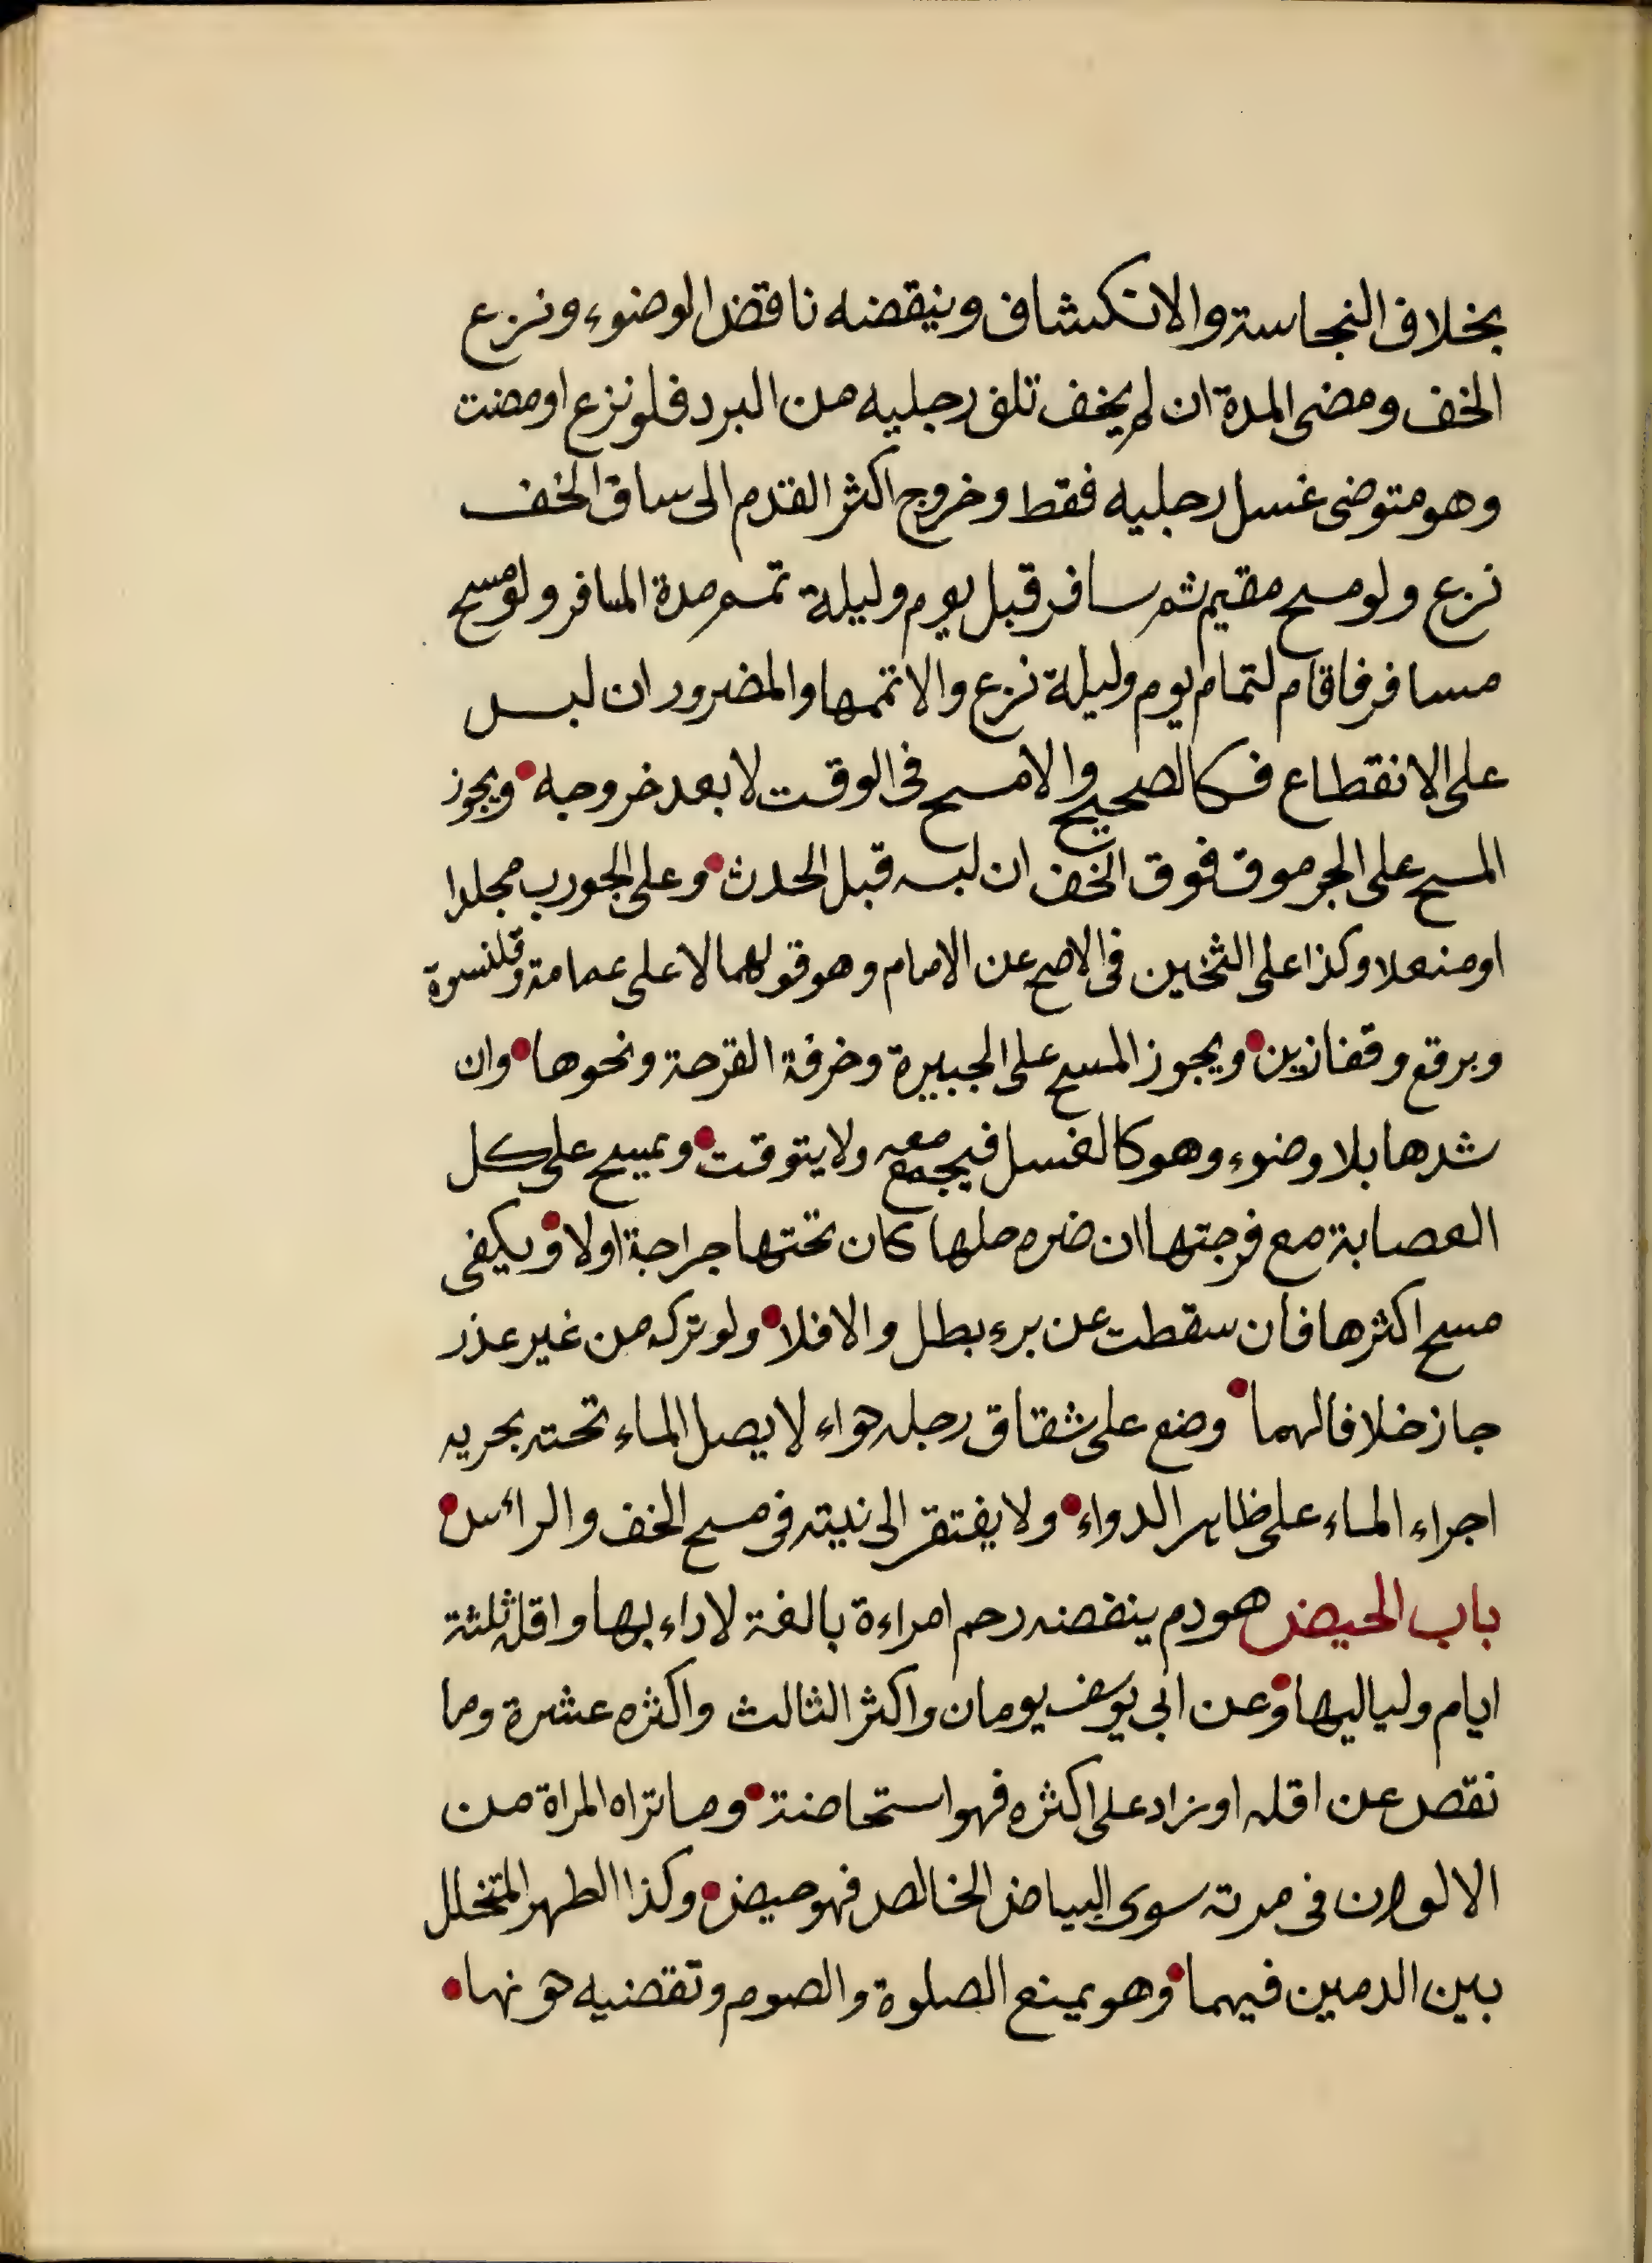 بخلاف النجاسة والانكشاف وينقضه ناقض الوضوء ونزع
الخف ومضى المدة ان لم يخف تلف رجليه من البرد فلو نزع او مضت
وهو متوضى غسل رجليه فقط وخروج اكثر القدم الى ساق الخف
نزع ولو مسح مقيم ثم سافر قبل يوم وليلة تمم مدة المسافر ولو مسح
مسافر فاقام لتمام يوم وليلة نزع والا تممها والمضرور ان لبس
على الانقطاع فكالصحيح والا مسح فى الوقت لا بعد خروجه ويجوز
المسح على الجرموق فوق الخف ان لبسه قبل الحدث وعلى الجورب مجلدا
او منعلا وكذا على الثخين فى الاصح عن الامام وهو قولهما لا على عمامة وقلنسوة
وبرقع وقفازين ويجوز المسح على الجبيرة وخرقة القرحة ونحوها وان
شدها بلا وضوء وهو كالغسل فيجمع معه ولا يتوقت ويمسح على كل
العصابة مع فرجتها ان ضره حلها كان تحتها جراحة اولا ويكفى
مسح اكثرها فان سقطت عن برء بطل والا فلا ولو تركه من غير عذر
جاز خلافا لهما وضع على شقاق رجله دواء لا يصل الماء تحته يجريه
اجراء الماء على ظاهر الدواء ولا يفتقر الى نية فى مسح الخف والرائس
باب الحيض هو دم ينفضه رحم امراءة بالغة لا داء بها واقله ثلثة
ايام ولياليها وعن ابى يوسف يومان واكثر الثالث واكثره عشرة وما
نقص عن اقله او زاد على اكثره فهو استحاضة وما تراه المراة من
الالوان فى مدته سوى البياض الخالص فهو حيض وكذا الطهر المتخلل
بين الدمين فيهما وهو يمنع الصلوة والصوم وتقضيه دونها